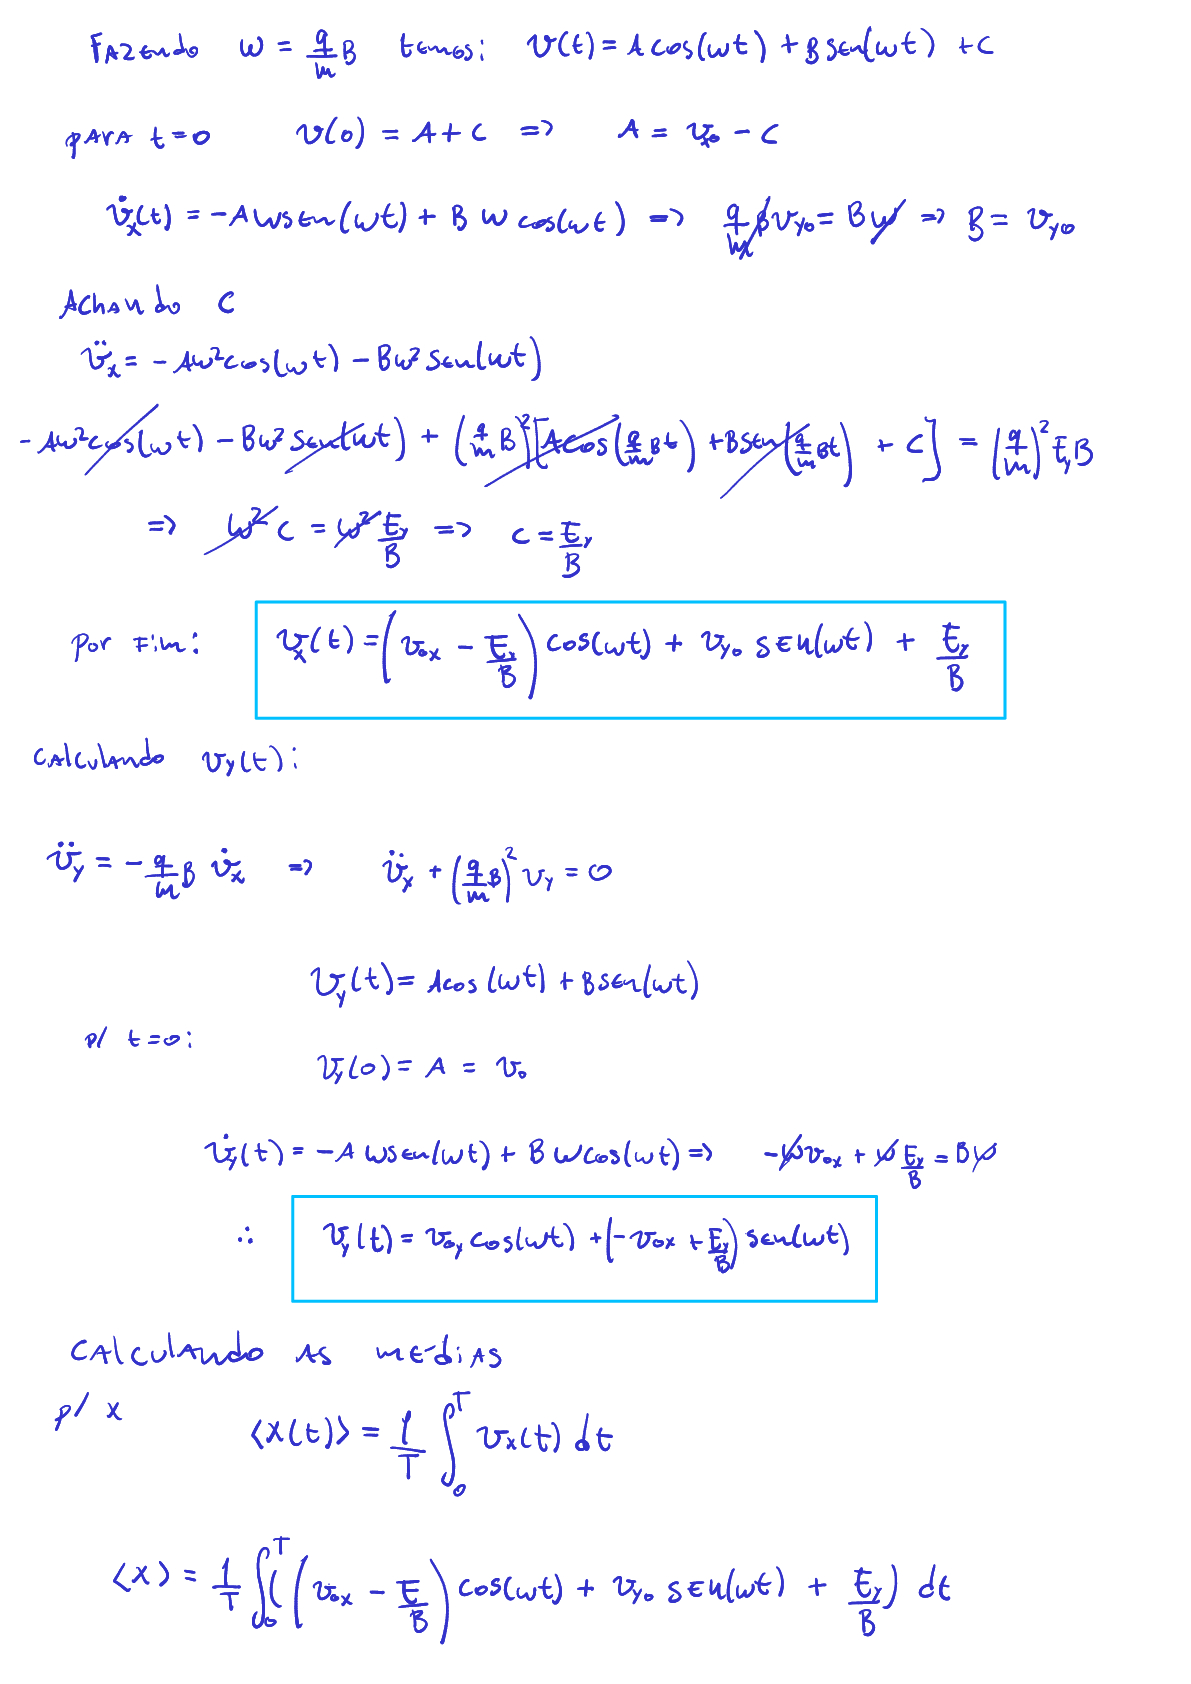 Fazendo ω = q/m B temos: v(t) = A cos(ωt) + B sen(ωt) + C
para t=0 v(0) = A + C => A = v_x0 - C
v̇_x(t) = -Aω sen(ωt) + B ω cos(ωt) => q/m B v_y0 = B ω => B = v_y0
Achando C
v̈_x = - Aω² cos(ωt) - Bω² sen(ωt)
- Aω² cos(ωt) - Bω² sen(ωt) + (q/m B)² [A cos(q/m B t) + B sen(q/m B t) + C] = (q/m)² E_y B
=> ω² C = ω² E_y/B => C = E_y/B
Por fim: v_x(t) = (v_0x - E_y/B) cos(ωt) + v_y0 sen(ωt) + E_y/B
Calculando v_y(t):
v̈_y = - q/m B v̇_x => v̈_y + (q/m B)² v_y = 0
v_y(t) = A cos(ωt) + B sen(ωt)
p/ t=0:
v_y(0) = A = v_0
v̇_y(t) = -A ω sen(ωt) + B ω cos(ωt) => -ω v_0x + ω E_y/B = B ω
∴ v_y(t) = v_0y cos(ωt) + (-v_0x + E_y/B) sen(ωt)
Calculando as médias
p/ x
⟨x(t)⟩ = 1/T ∫₀ᵀ v_x(t) dt
⟨x⟩ = 1/T ∫₀ᵀ ((v_0x - E/B) cos(ωt) + v_y0 sen(ωt) + E_y/B) dt